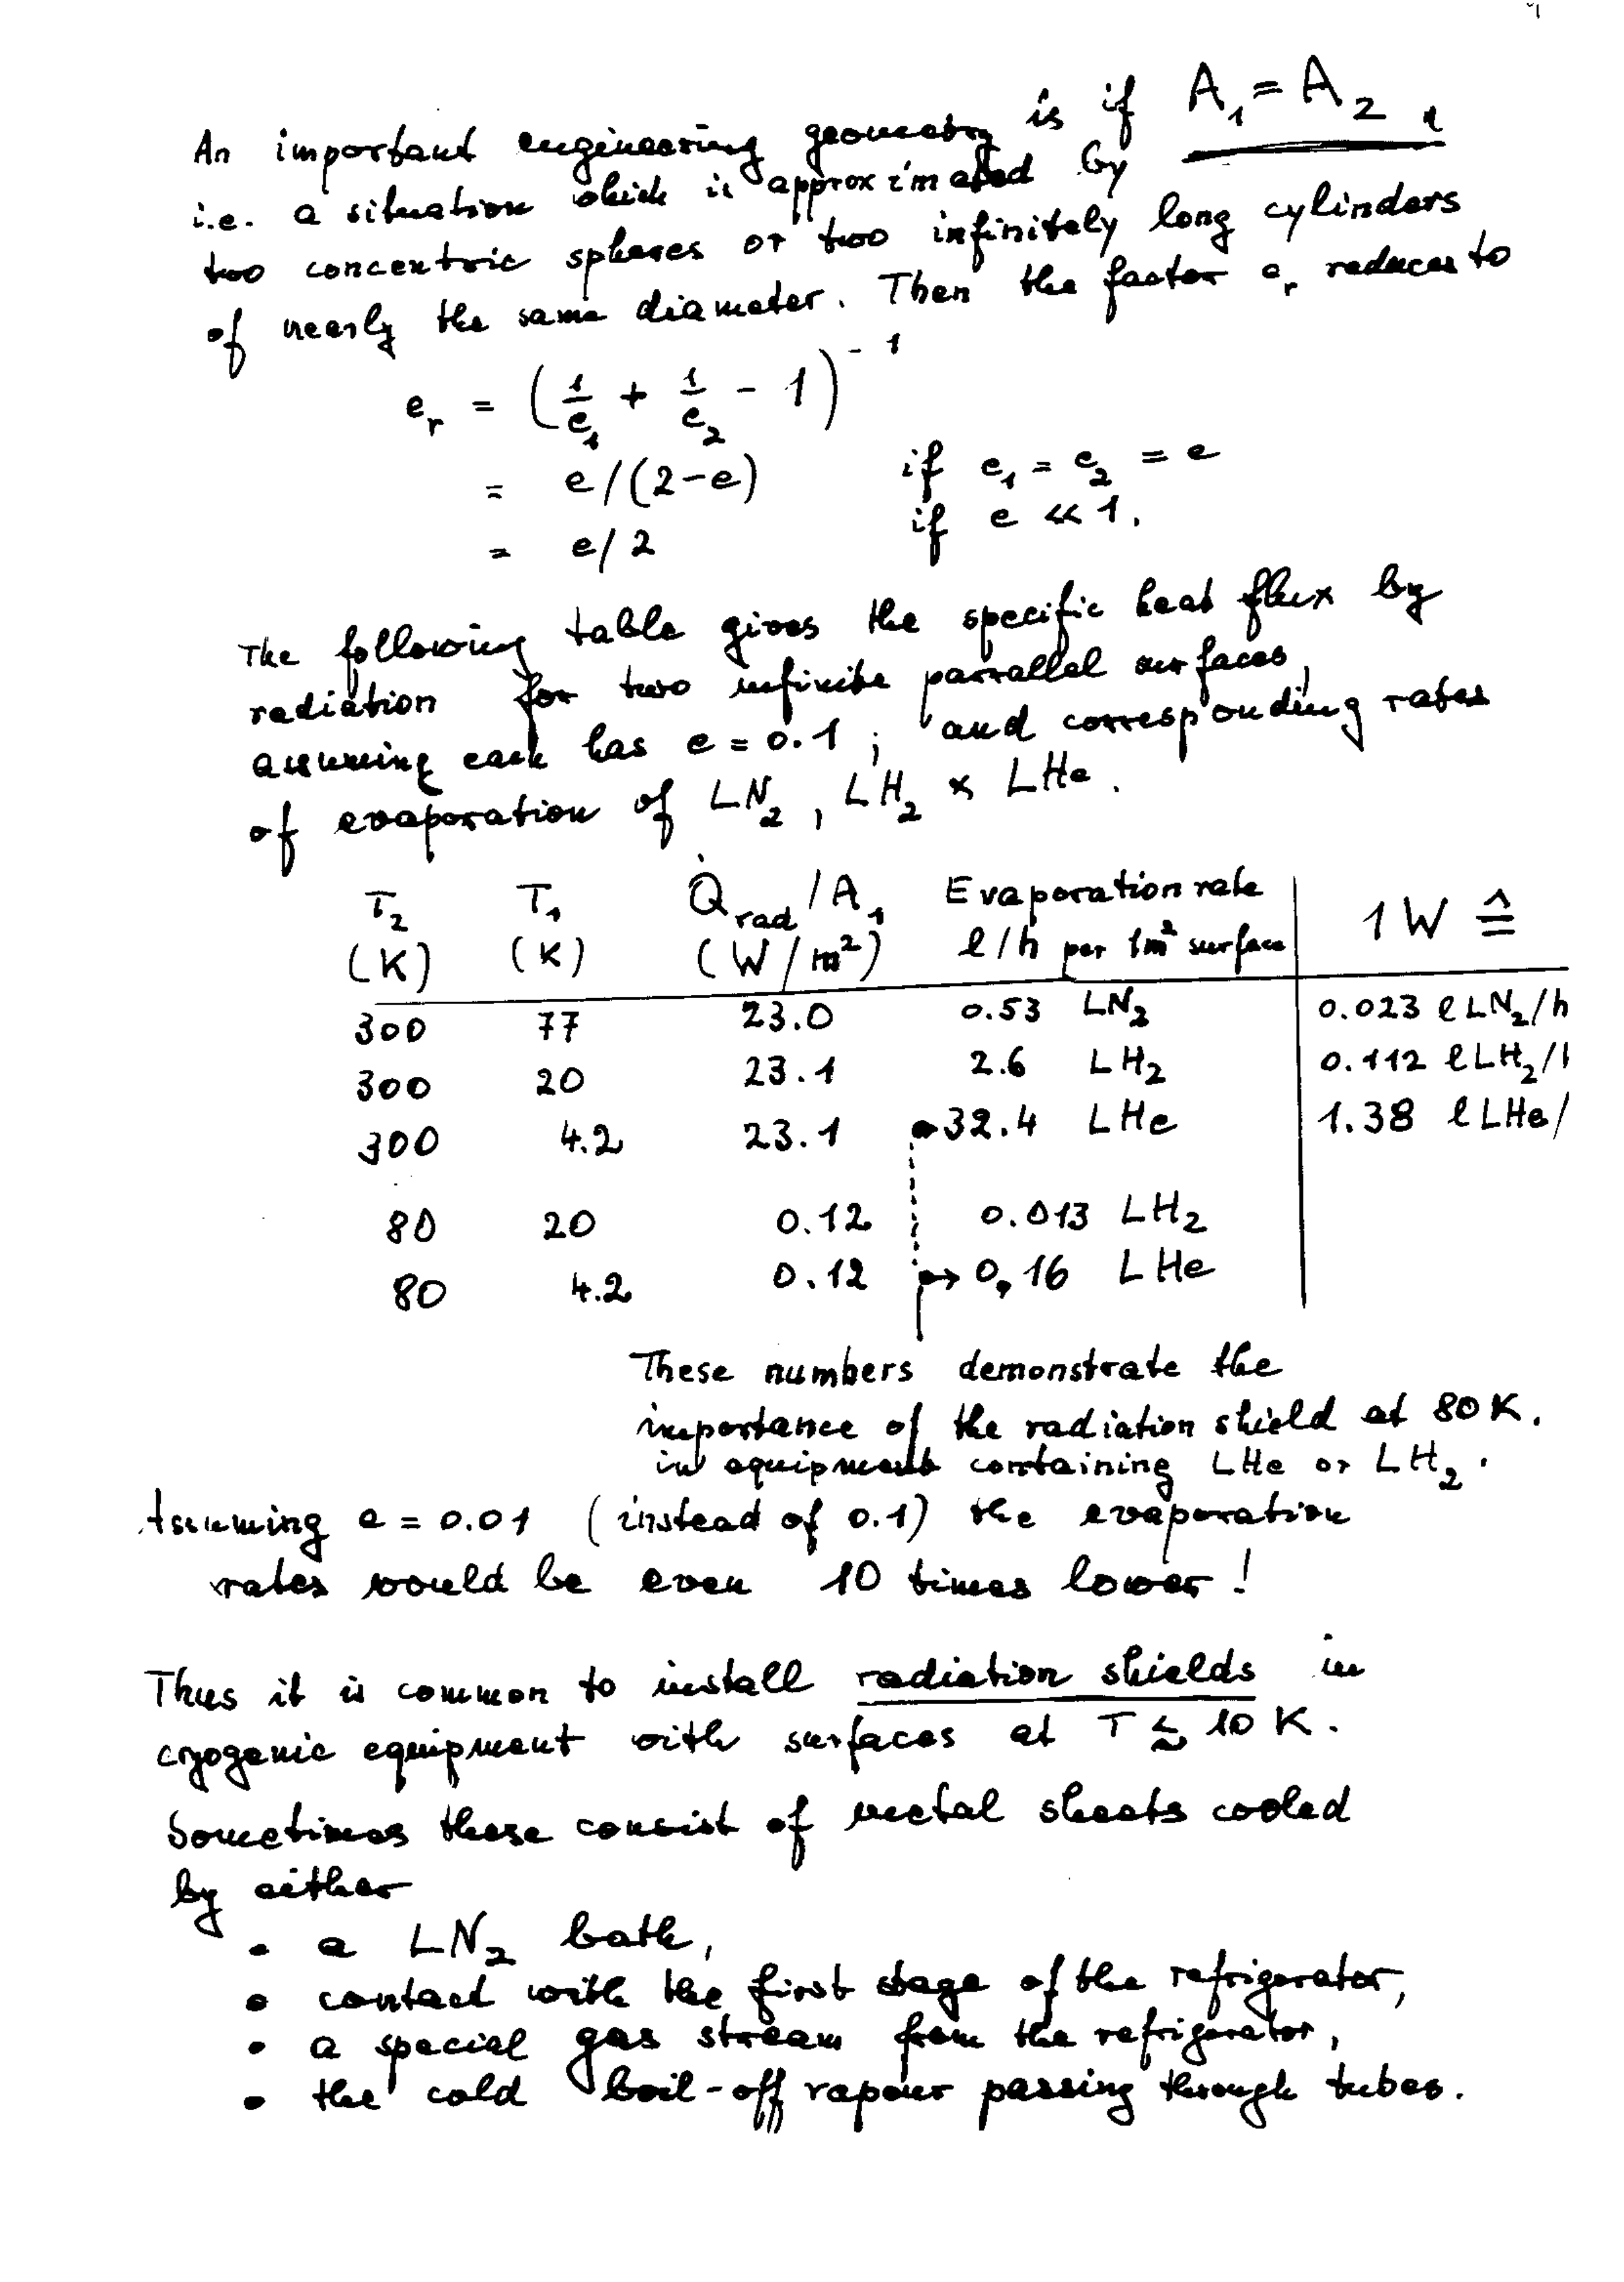 An important engineering geometry is if A₁ = A₂,
i.e. a situation which is approximated by
two concentric spheres or two infinitely long cylinders
of nearly the same diameter. Then the factor e_r reduces to
e_r = (1/e₁ + 1/e₂ - 1)⁻¹
= e/(2-e) if e₁ = e₂ = e
= e/2 if e ≪ 1.
The following table gives the specific heat flux by
radiation for two infinite parrallel surfaces,
assuming each has e = 0.1 ; and corresponding rates
of evaporation of LN₂, LH₂ & LHe.
T₂ T₁ Q̇rad/A₁ Evaporation rate 1W ≙
(K) (K) (W/m²) l/h per 1m² surface
300 77 23.0 0.53 LN₂ 0.023 l LN₂/h
300 20 23.1 2.6 LH₂ 0.112 l LH₂/
300 4.2 23.1 32.4 LHe 1.38 l LHe/
80 20 0.12 0.013 LH₂
80 4.2 0.12 → 0,16 LHe
These numbers demonstrate the
importance of the radiation shield at 80 K.
in equipment containing LHe or LH₂.
Assuming e = 0.01 (instead of 0.1) the evaporation
rates would be even 10 times lower!
Thus it is common to install radiation shields in
cryogenic equipment with surfaces at T ≲ 10 K.
Sometimes these consist of metal sheets cooled
by either
• a LN₂ bath,
• contact with the first stage of the refrigerator,
• a special gas stream from the refrigerator,
• the cold boil-off vapour passing through tubes.